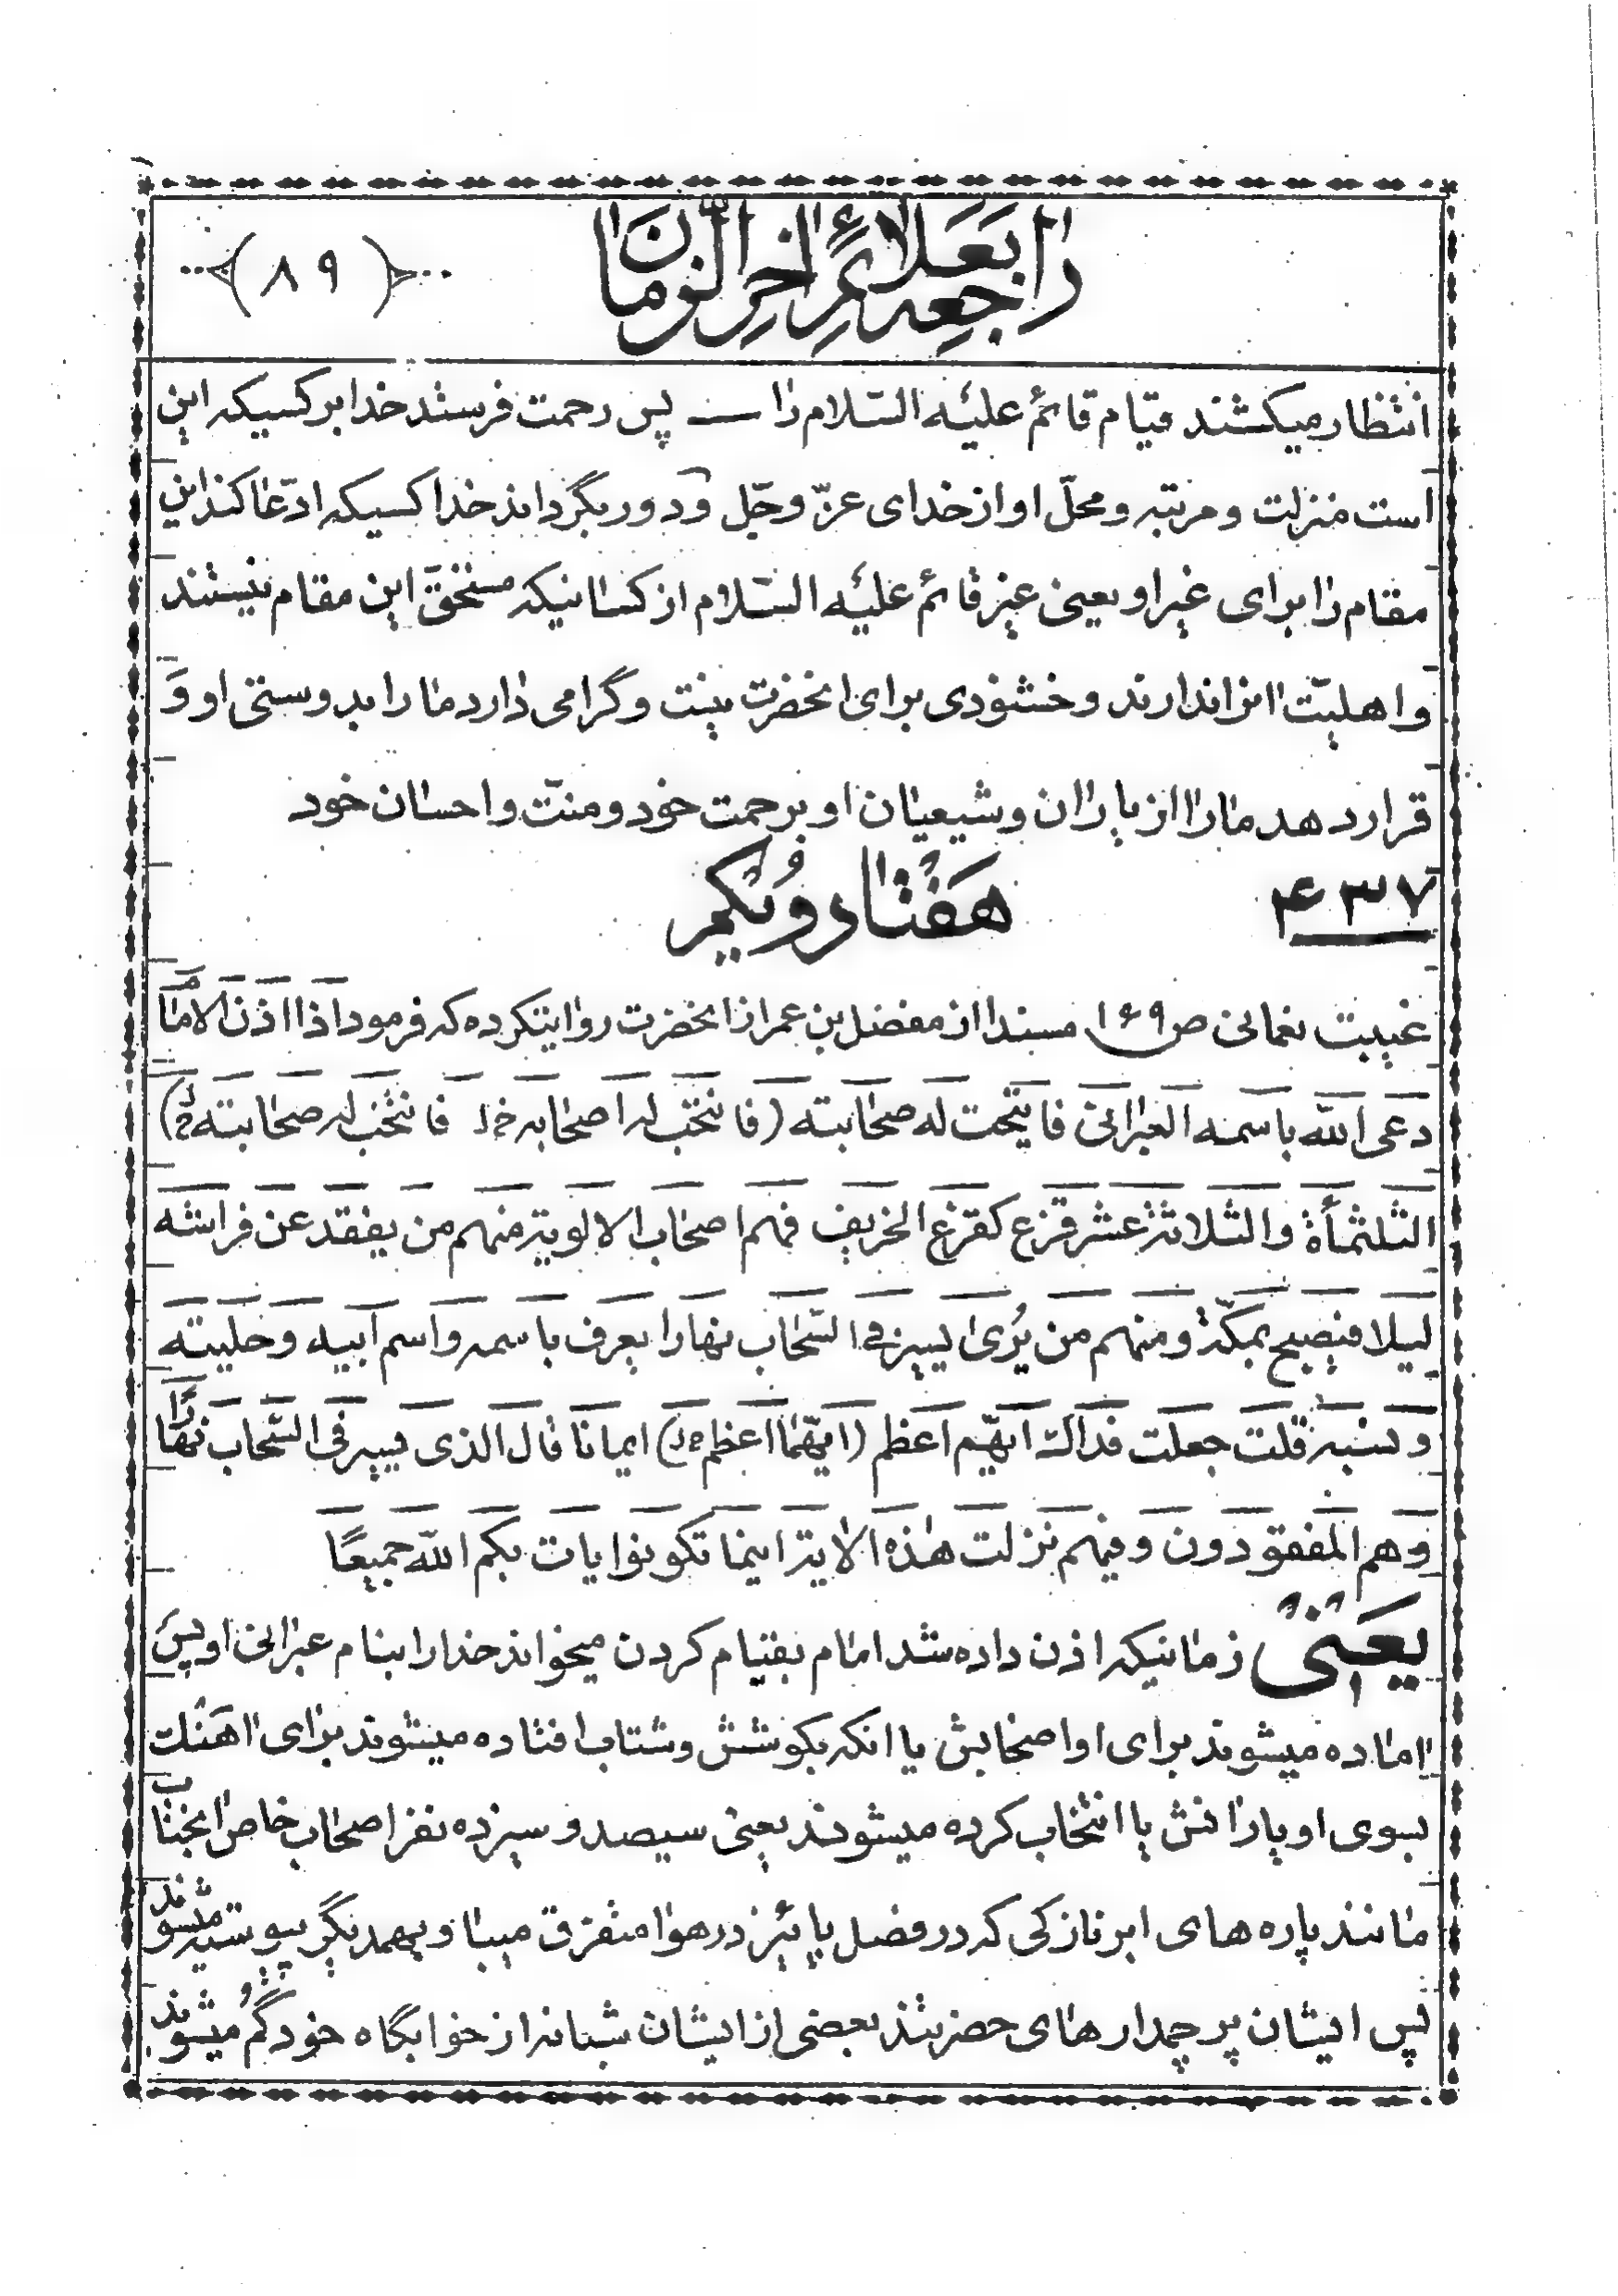 راجعه بعلائم اخر الزمان
(۸۹)
انتظار میکشند قیام قائم علیه السّلام را — پس رحمت فرستد خدا بر کسیکه این
است منزلت و مرتبه و محلّ او از خدای عزّ و جّل و دور بگرداند خدا کسیکه ادّعا کند این
مقام را برای غیر او یعنی غیر قائم علیه السّلام از کسانیکه مستحقّ این مقام نیستند
و اهلیّت انرا ندارند و خشنودی برای انحضرت نیست و گرامی دارد ما را بدوستی او و
قرار دهد ما را از یاران و شیعیان او برحمت خود و منّت و احسان خود
۴۳۷ هفتاد و یکم
غیبت نعمانی ص ۱۶۹ مسندا از مفضل بن عمر از انحضرت روایتکرده که فرمود اذا اذن الامام
دعی الله باسمه العبرانی فاتیحت له صحابته (فانتخب له اصحابه خ ل فانتخب له صحابته خ ل)
الثلثمأة والثلاثة عشر قزع کقزع الخریف فهم اصحاب الالویة منهم من یفقد عن فراشه
لیلا فیصبح بمکّة و منهم من یُری یسیر فی السّحاب نهارا یعرف باسمه و اسم ابیه و حلیته
و نسبه قلت جعلت فداک ایّهم اعظم (ایّهما اعظم خ ل) ایمانا قال الذی یسیر فی السّحاب نهارًا
و هم المفقودون و فیهم نزلت هذه الایة اینما تکونوا یات بکم الله جمیعًا
یعنی زمانیکه اذن داده شد امام بقیام کردن میخواند خدا را بنام عبرانی او پس
اماده میشوند برای او اصحابش یا انکه بکوشش و شتاب افتاده میشوند برای اهنک
بسوی او یارانش یا انتخاب کرده میشوند یعنی سیصد و سیزده نفر اصحاب خاص انجناب
مانند پاره های ابر نازکی که در فصل پائیز در هوا متفرق میبا و بهمدیگر پیوسته میشوند
پس ایشان پرچمدارهای حضرتند بعضی از ایشان شبانه از خوابگاه خود گم میشوند